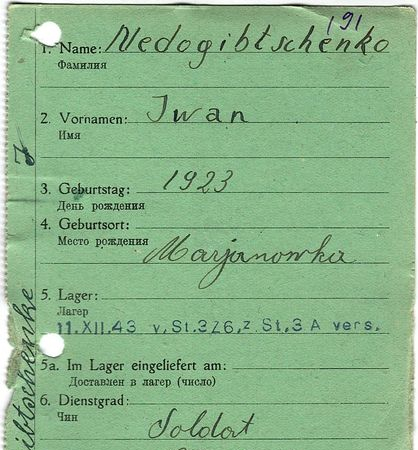 191
1. Name: Nedogibtschenko
Фамилия
2. Vornamen: Iwan
Имя
3. Geburtstag: 1923
День рождения
4. Geburtsort:
Место рождения Marjanowka
5. Lager:
Лагер
11.XII.43 v. St. 326, z St. 3 A vers.
5a. Im Lager eingeliefert am:
Доставлен в лагер (число)
6. Dienstgrad:
Чин Soldat
ibtschenke